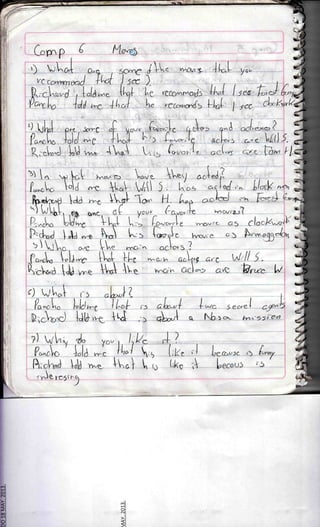 Comp 6 Moves
1) What are some of the movies that you
recommend that I see?
Richard told me that he recommends that I see Forest Gump
Pancho told me that he recomends that I see clockwork
2) What are some of your favorite actors and actresses?
Pancho told me that his favorite actors are Will S.
Richard told me that his favorite actors are Tom H.
3) In what movies have they acted?
Pancho told me that Will S. has acted in black men
Richard told me that Tom H. has acted on Forest Gump
4) What is one of your favorite movies?
Pancho told me that his favorite movie as clockwork
Richard told me that his favorite movie as Armageddon
5) Who are the main actors?
Pancho told me that the main actors are Will S.
Richard told me that the main actors are Bruce W.
6) What is about?
Pancho told me that is about two secret agents
Richard told me that is about a Nasa mission
7) Why do you like it?
Pancho told me that his like it because is funny
Richard told me that his like it becous is
interesing
18 MAY. 2013
MAY. 2013